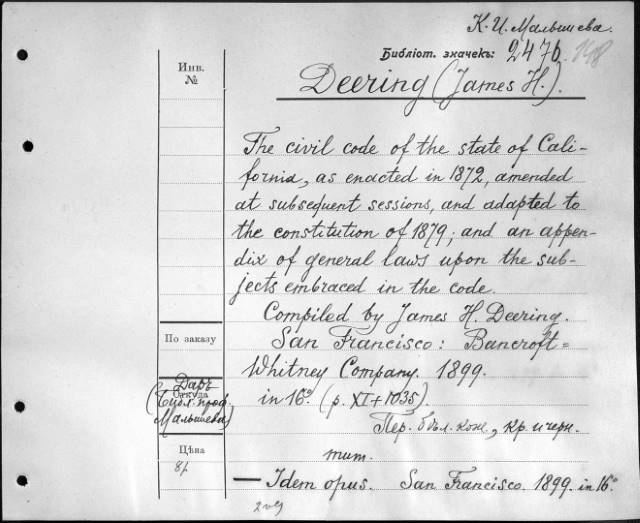 К. И. Малышева.
Библіот. значекъ: 2476. 148
Инв.
№
Deering (James H.).
The civil code of the state of Cali-
fornia, as enacted in 1872, amended
at subsequent sessions, and adapted to
the constitution of 1879; and an appen-
dix of general laws upon the sub-
jects embraced in the code.
Compiled by James H. Deering.
San Francisco: Bancroft=
Whitney Company. 1899.
in 16º. (p. XI + 1035).
Пер. бѣл. кож., кр. и черн.
тит.
— Idem opus. San Francisco. 1899. in 16º
По заказу
Даръ
Откуда
(Библ. проф.
Малышева)
Цѣна